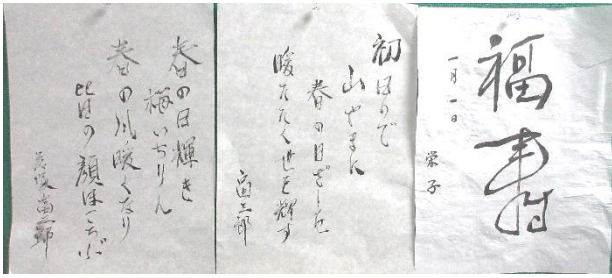 福寿
一月一日
栄子
初日ので
山やまに
春の日ざしを
暖たたく世を輝す
富三郎
春の日輝き
梅いちりん
春の風暖くなり
皆の顔ほころぶ
富三郎